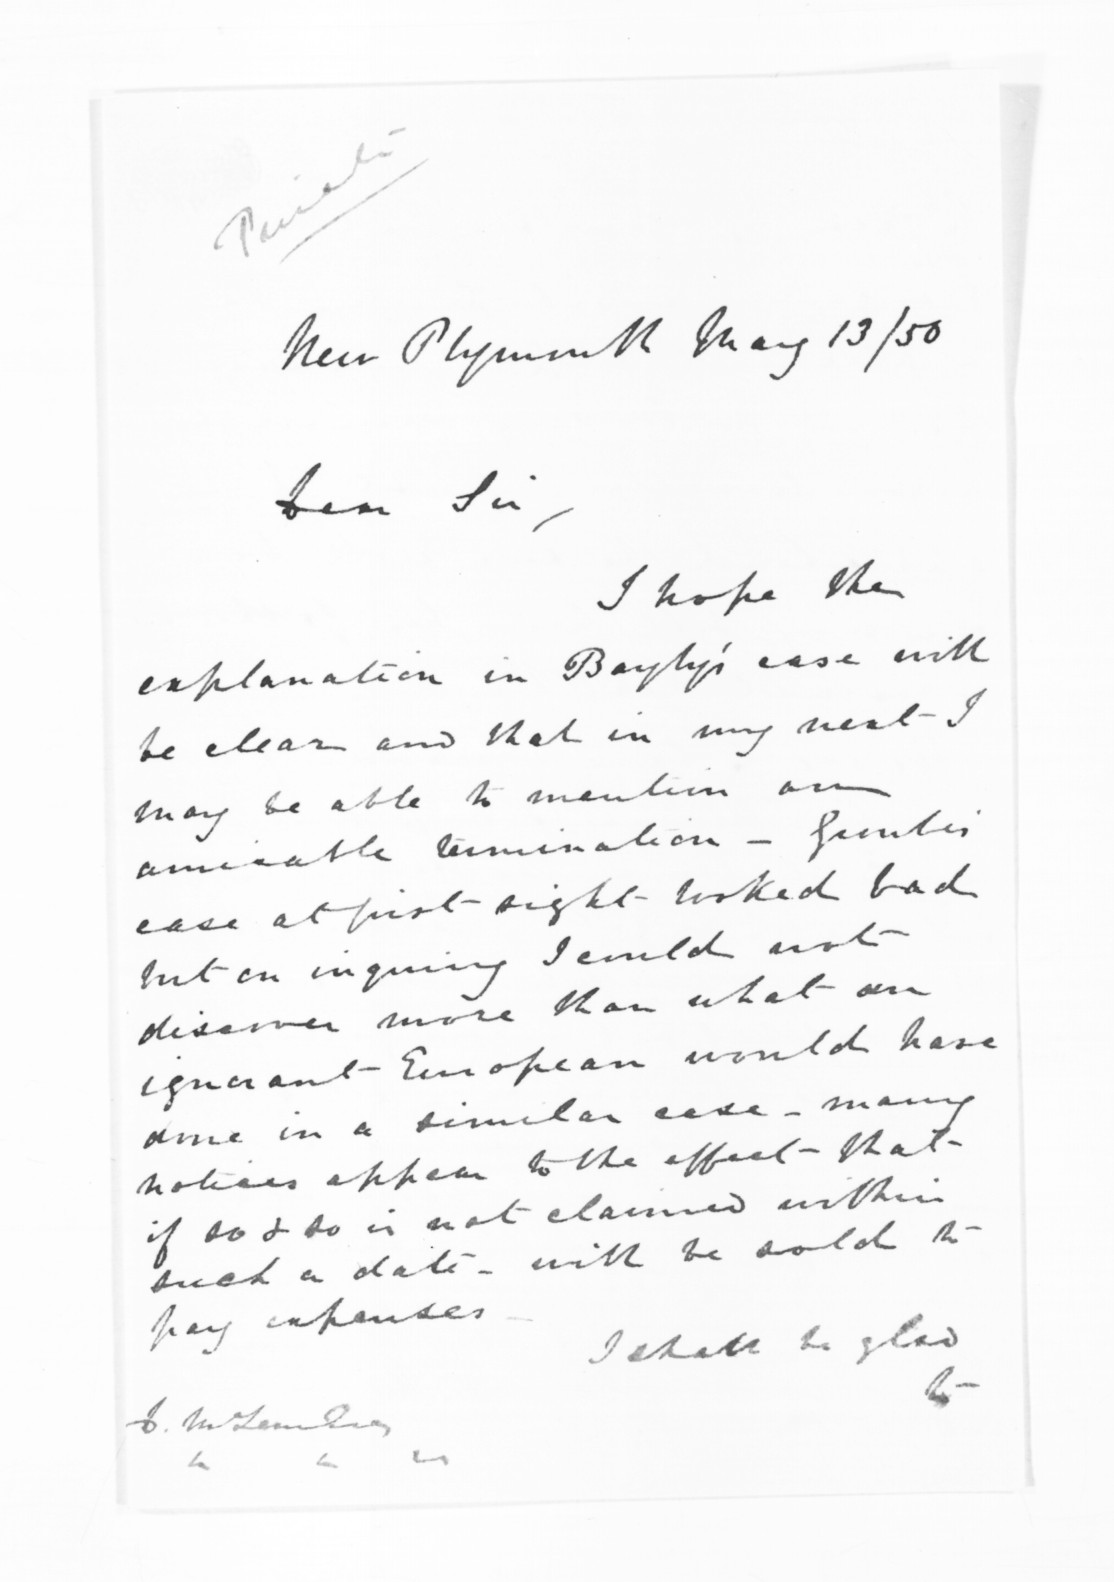 Private
New Plymouth May 13/50
Dear Sir,
I hope the
explanation in Bayly's case will
be clear and that in my next I
may be able to mention an
amicable termination -
case at first sight looked bad
but on inquiry I could not
discover more than what an
ignorant European would have
done in a similar case - many
notices appear to the effect that
if so & so is not claimed within
such a date - will be sold to
pay expenses -
I shall be glad
to
D. McLean Esq